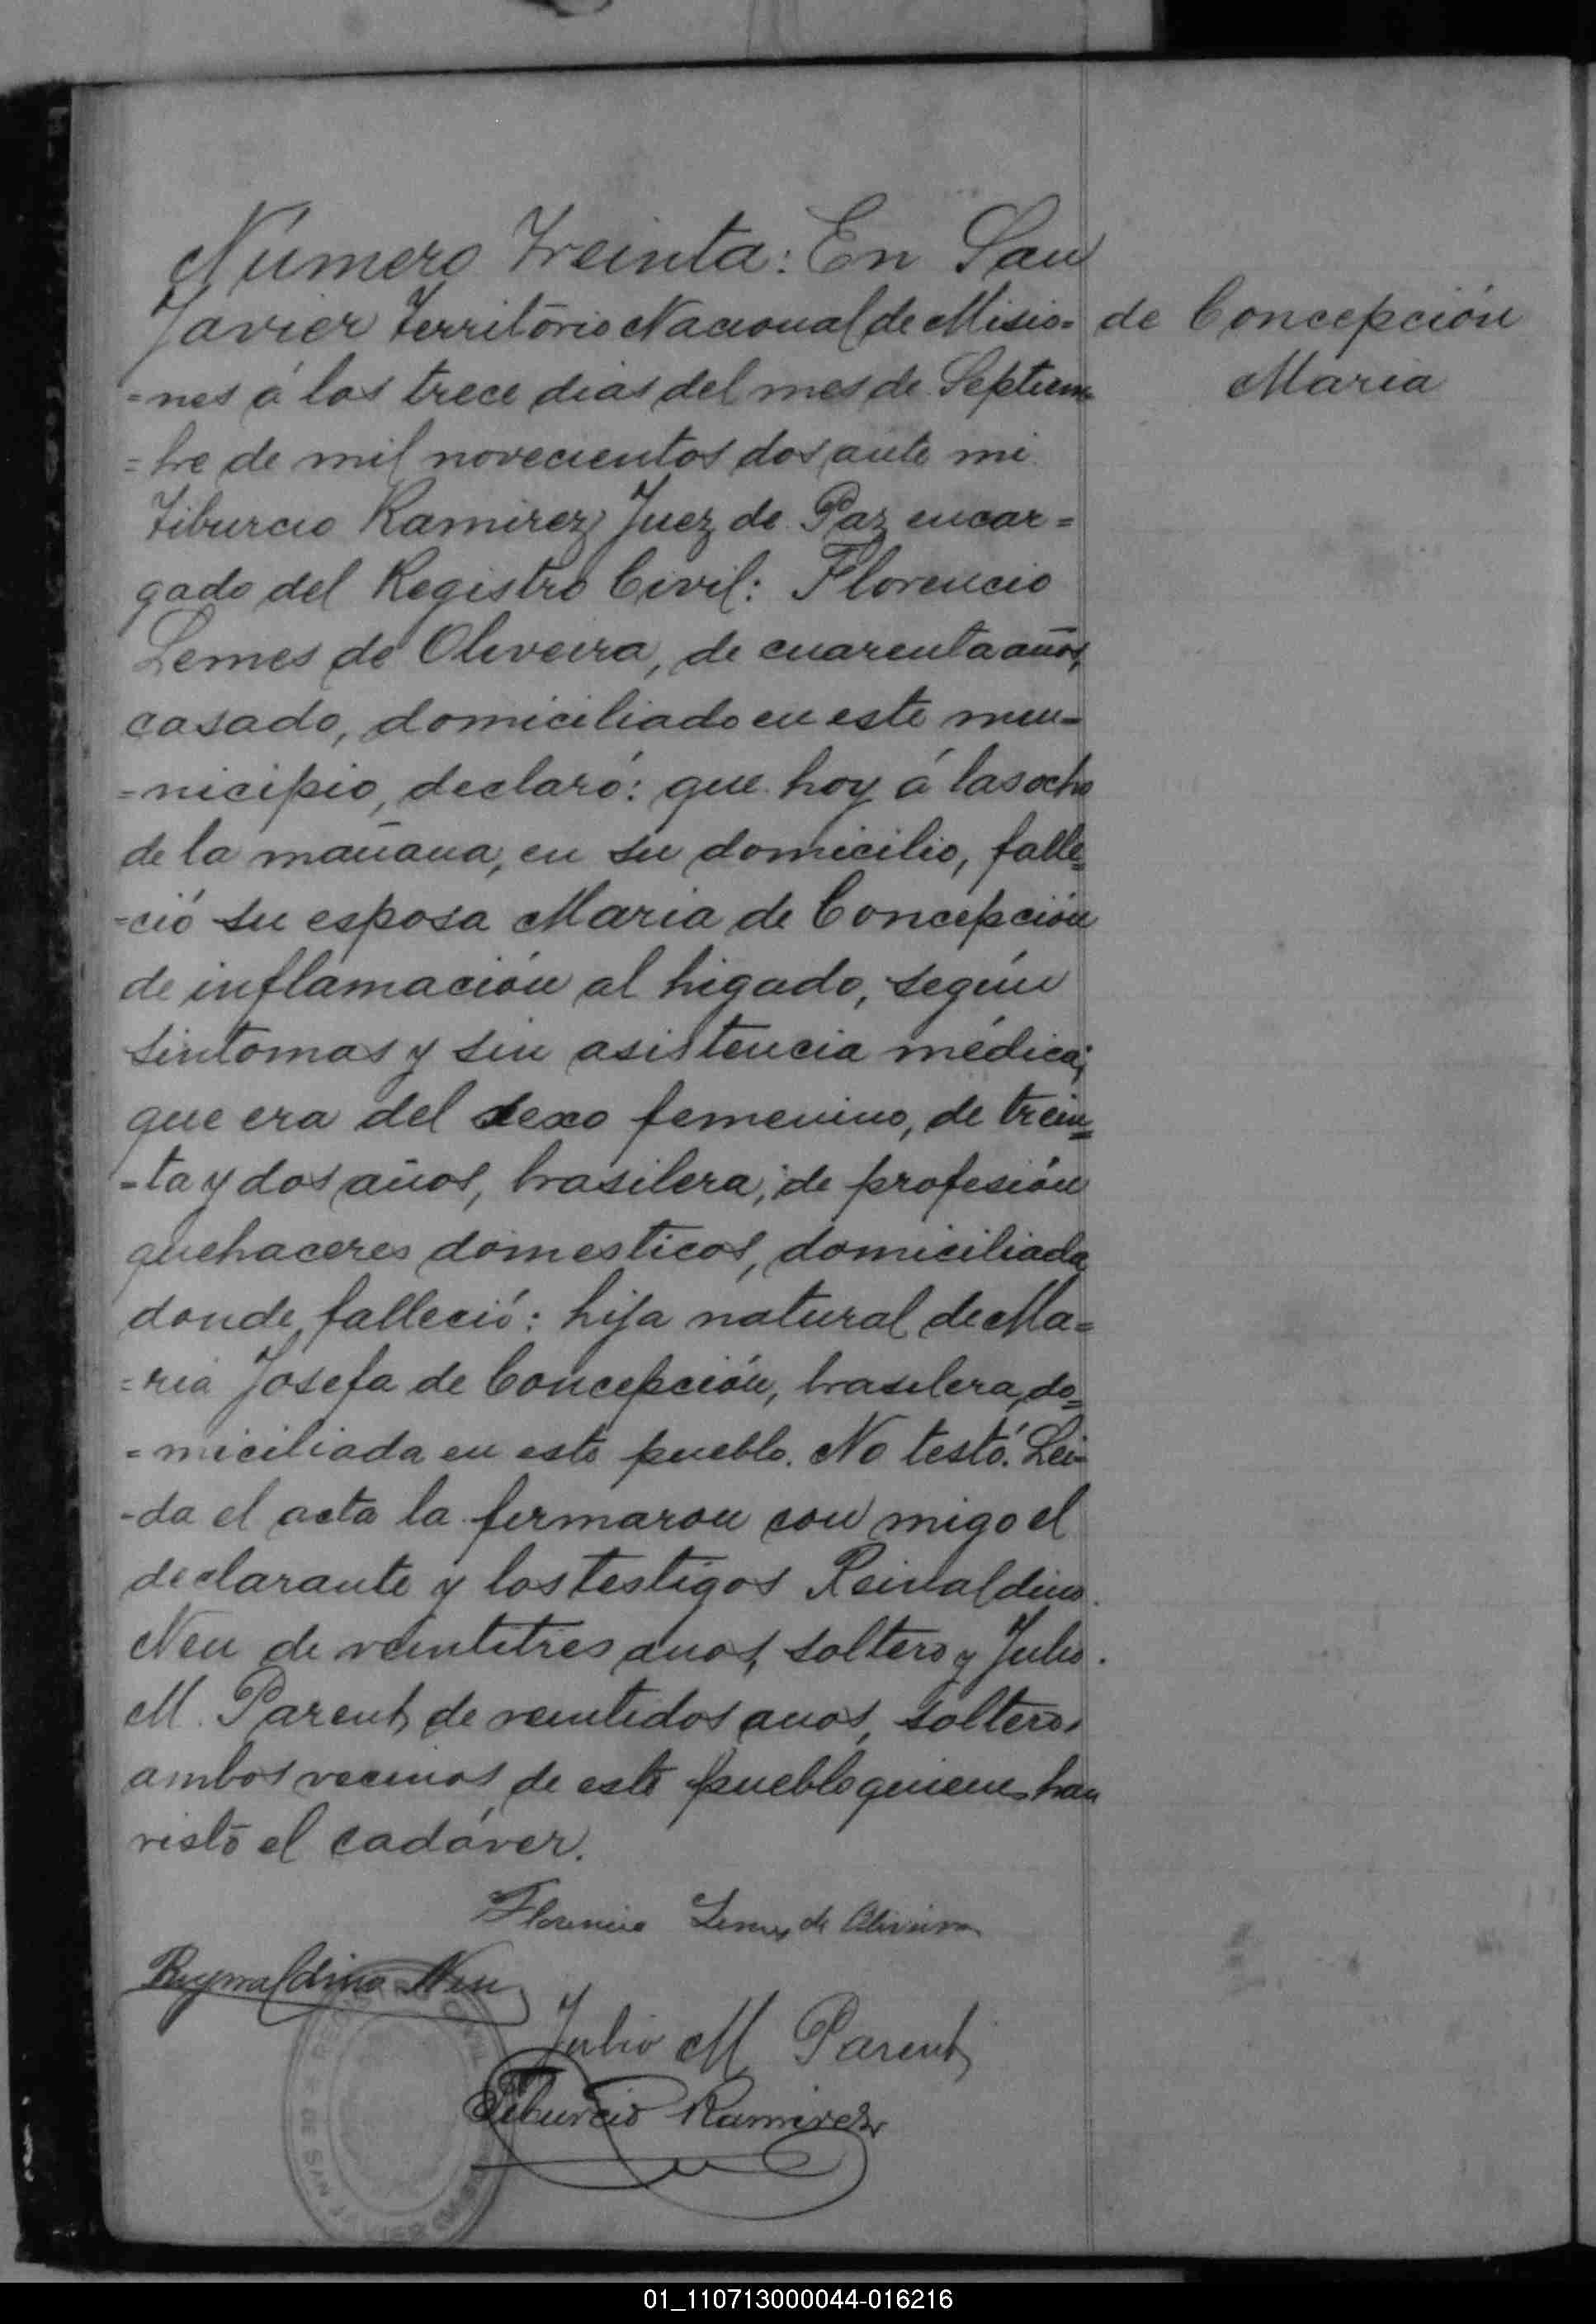 Número Treinta: En San
Javier Territorio Nacional de Misio=
de Concepción
Maria
=nes á los trece dias del mes de Septiem=
=bre de mil novecientos dos, ante mi
Tiburcio Ramirez, Juez de Paz encar=
gado del Registro Civil: Florencio
Lemes de Oliveira, de cuarenta años,
casado, domiciliado en este mu=
=nicipio, declaró: que hoy á las ocho
de la mañana, en su domicilio, falle=
=ció su esposa Maria de Concepción
de inflamación al higado, según
sintomas y sin asistencia médica;
que era del sexo femenino, de trein=
=ta y dos años, brasilera, de profesión
quehaceres domesticos, domiciliada
donde falleció: hija natural de Ma=
=ria Josefa de Concepción, brasilera, do=
=miciliada en este pueblo. No testó. Lei=
-da el acta la firmaron con migo el
declarante y los testigos Reinaldino
Neu de veintitres anos, soltero y Julio
M. Parent, de veintidos anos, soltero,
ambos vecinos de este pueblo quienes han
visto el cadáver.
Florencio Lemes de Oliveira
Reynaldino Neu
Julio M Parent
Tiburcio Ramirez
DE SAN JAVIER
01_110713000044-016216